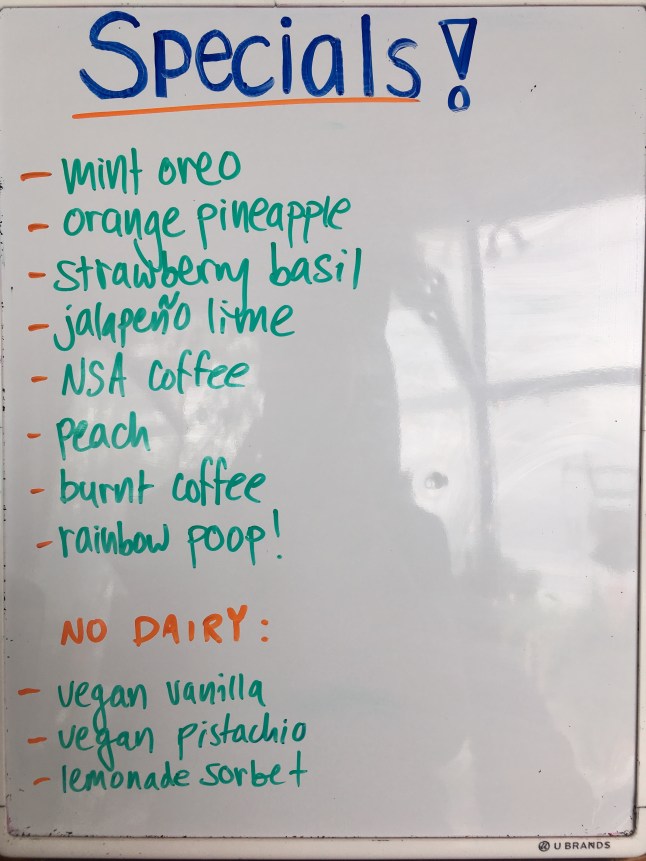 Specials!
- mint oreo
- orange pineapple
- strawberry basil
- jalapeño lime
- NSA coffee
- peach
- burnt coffee
- rainbow poop!
NO DAIRY:
- vegan vanilla
- vegan pistachio
- lemonade sorbet
U BRANDS